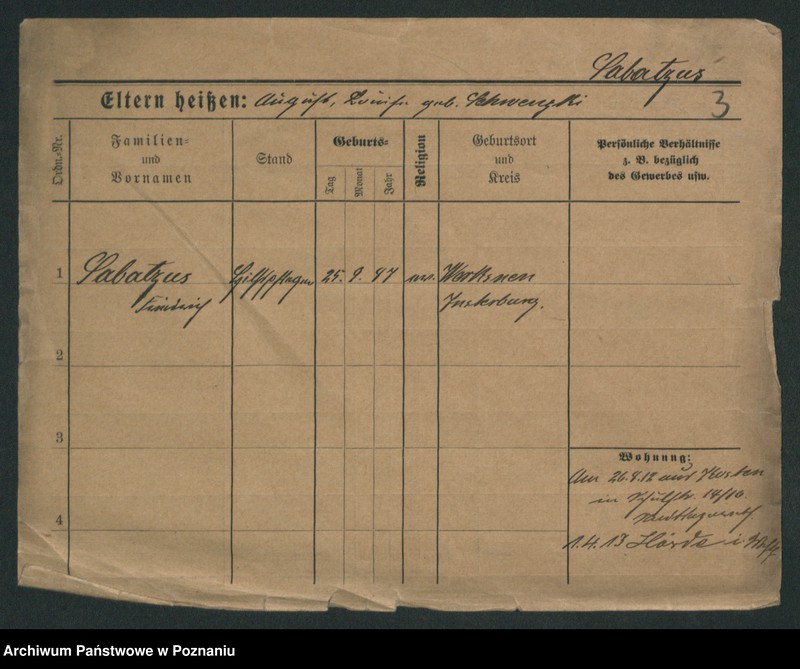 Sabatzus
Eltern heißen: August, Louise geb. Schwenzki
3
Ordn.-Nr.
Familien-
und
Vornamen
Stand
Geburts-
Tag
Monat
Jahr
Religion
Geburtsort
und
Kreis
Persönliche Verhältnisse
z. B. bezüglich
des Gewerbes usw.
1 Sabatzus 25. 9. 87
Insterburg.
2
3
Wohnung:
Am 26.9.12 aus
in 14/10.
4
1.4.13 Hörde i.
Archiwum Państwowe w Poznaniu